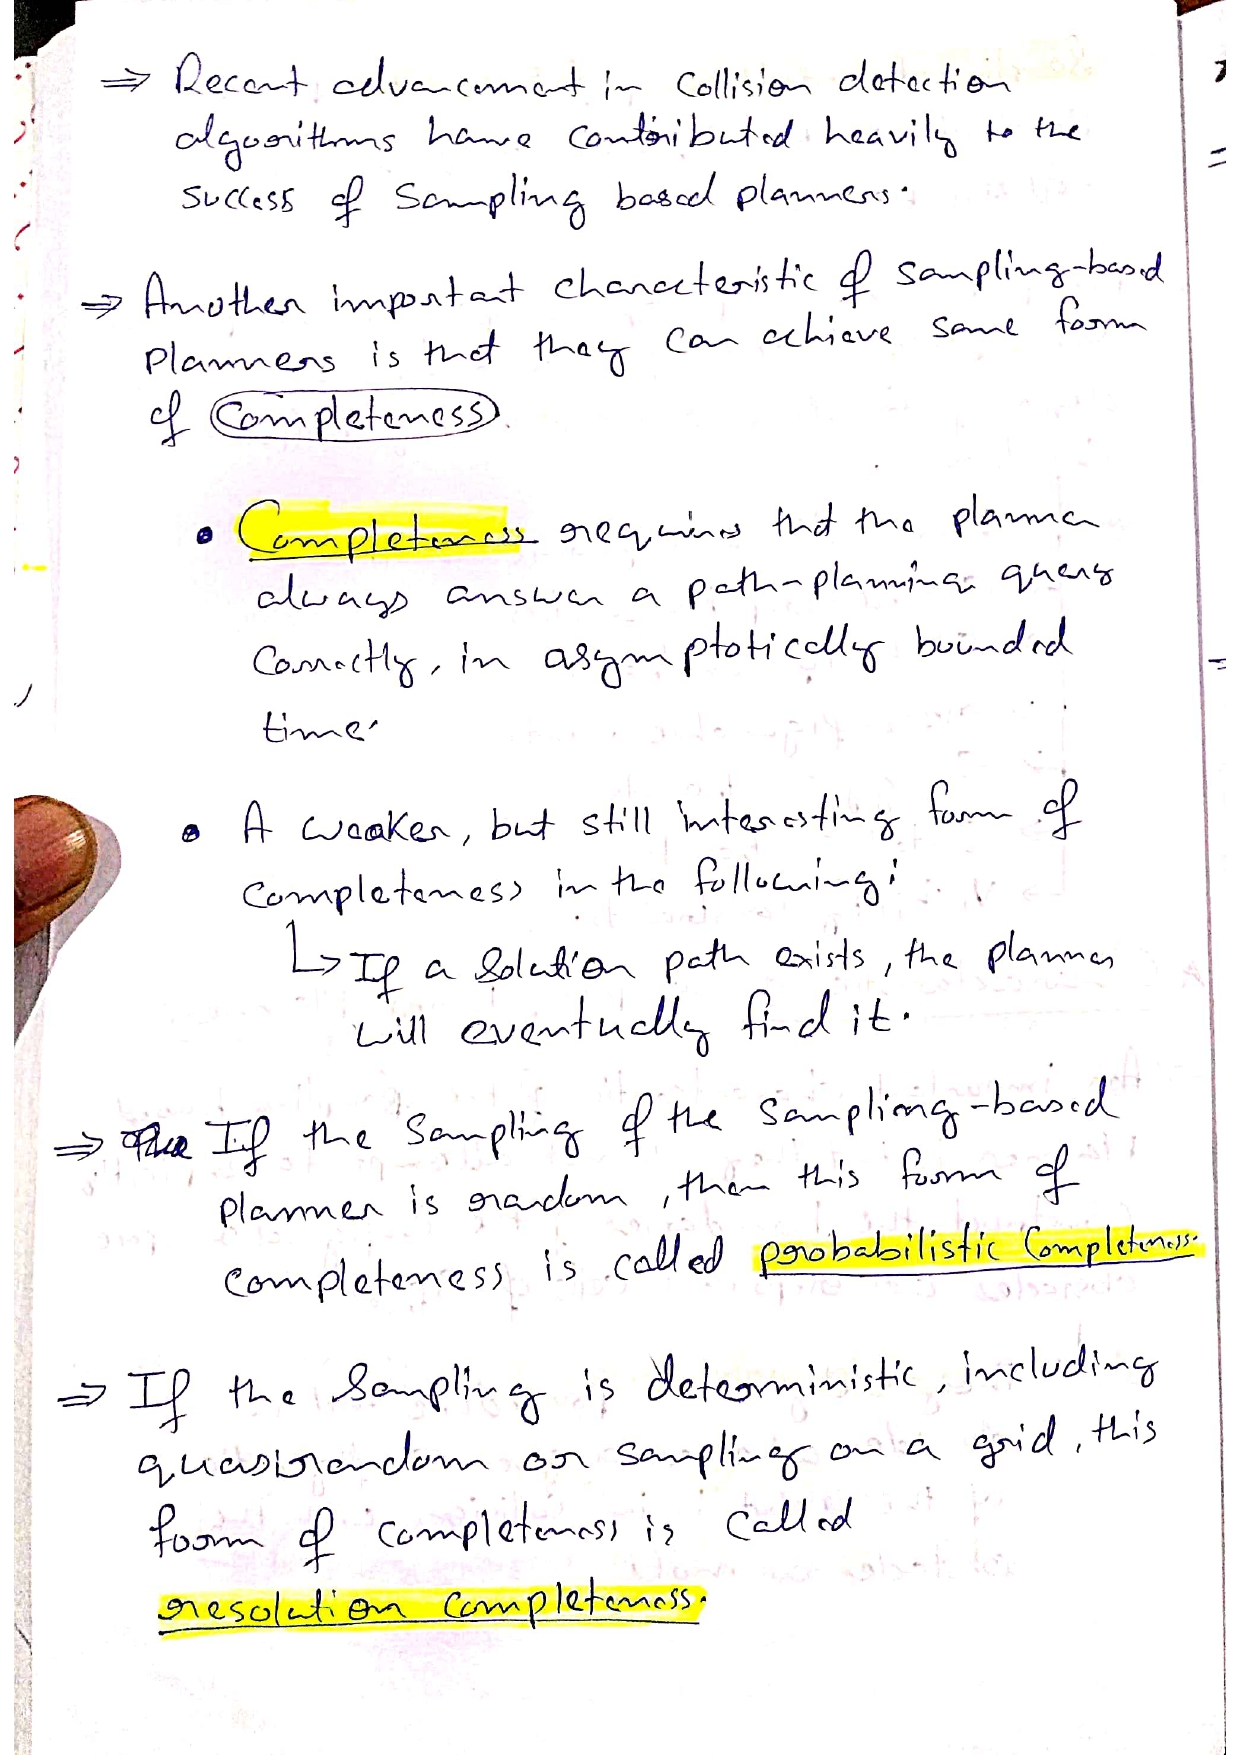 ⇒ Recent advancement in Collision detection
algorithms have contributed heavily to the
success of Sampling based planners.
⇒ Another important characteristic of sampling-based
planners is that they can achieve some form
of Completeness.
• Completeness requires that the planner
always answer a path-planning query
Correctly, in asymptotically bounded
time.
• A weaker, but still interesting form of
Completeness in the following:
↳ If a solution path exists, the planner
will eventually find it.
⇒ If the Sampling of the Sampling-based
planner is random, then this form of
completeness is called probabilistic Completeness.
⇒ If the Sampling is deterministic, including
quasirandom or sampling on a grid, this
form of completeness is called
resolution completeness.